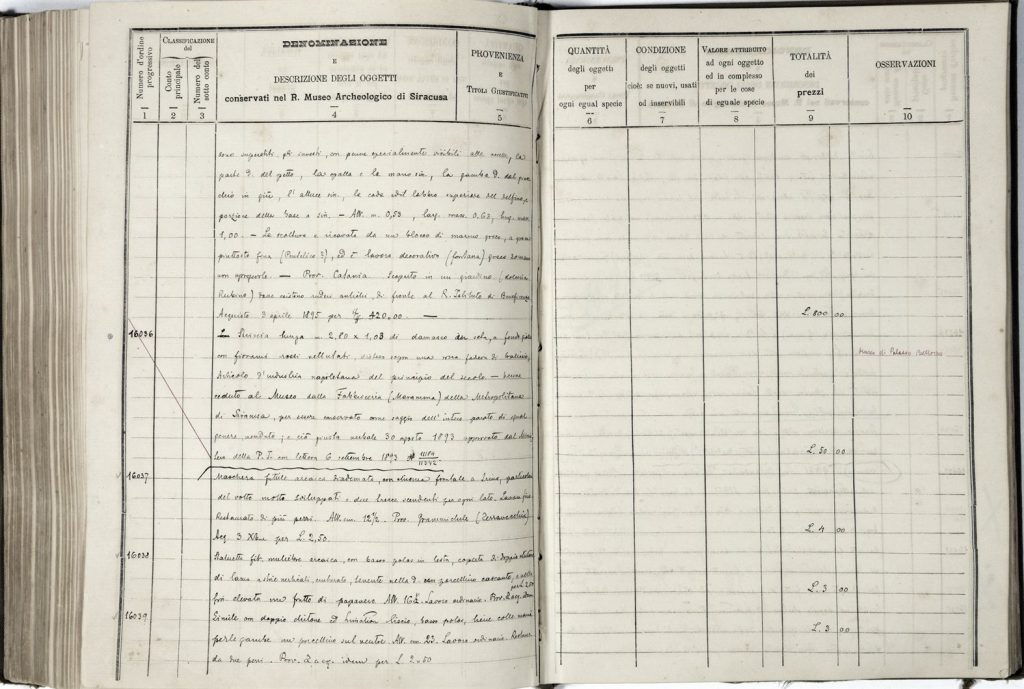 Numero d'ordine progressivo
1
CLASSIFICAZIONE
del
Conto principale
2
Numero del sotto conto
3
DENOMINAZIONE
E
DESCRIZIONE DEGLI OGGETTI
conservati nel R. Museo Archeologico di Siracusa
4
PROVENIENZA
E
TITOLI GIUSTIFICATIVI
5
QUANTITÀ
degli oggetti
per
ogni egual specie
6
CONDIZIONE
degli oggetti
cioè: se nuovi, usati
od inservibili
7
VALORE ATTRIBUITO
ad ogni oggetto
ed in complesso
per le cose
di eguale specie
8
TOTALITÀ
dei
prezzi
9
OSSERVAZIONI
10
sono superstiti, più con penne specialmente visibili alle la
parte d. del petto, la spalla e la mano sin., la gamba d. dal ginoc
chio in giù, l'alluce sin., la coda ed il labbro superiore del delfino, e
porzione della base a sin. — Alt. m. 0,53, larg. mass. 0,63, lung. mass.
1,00. — La scultura è ricavata da un blocco di marmo greco, a grana
piuttosto fina ed è lavoro decorativo (fontana) greco romano
non spregevole. — Prov. Catania. Scoperto in un giardino
Rubino) dove esistono ruderi antichi, di fronte al R. Istituto di Beneficenza
Acquisto 3 aprile 1895 per 420,00. —
L. 800 00
16036
Striscia lunga m. 2,80 x 1,03 di damasco di seta, a fondo
con fiorami rossi vellutati, disteso sopra una rossa fodera di
Articolo d'industria napoletana del principio del secolo. —
ceduto al Museo dalla Fabbriceria (Maramma) della Metropolitana
di Siracusa, per essere conservato come saggio dell'intero parato di egual
genere, venduto; e ciò giusta verbale 30 agosto 1893 approvato dal Mini
stero della P. I. con lettera 6 settembre 1893 11184/11342
L. 50 00
Museo di Palazzo Bellomo
16037
Maschera fittile arcaica diademata, con chioma frontale a particolari
del volto molto sviluppati e due trecce scendenti per ogni lato. Lavoro fine
Restaurato di più pezzi. Alt. cm. 12 1/2. Prov. Grammichele (Terravecchia)
Acq. 3 Xbre per L. 2,50.
L. 4 00
16038
Statuetta fit. muliebre arcaica, con basso polos in testa, coperta di doppio chitone
di lana a verticali, tenente nella d. un porcellino cascante, e nella
sin. elevata un frutto di papavero. Alt. 16 Lavoro ordinario. Prov. e acq. idem
per L. 2.50
L. 3 00
16039
Simile con doppio chitone ed himation liscio, basso polos, tiene colle mani
per le gambe un porcellino sul ventre. Alt. cm. 23. Lavoro ordinario. Restaur.
da due pezzi. Prov. e acq. idem per L. 2.50
L. 3 00